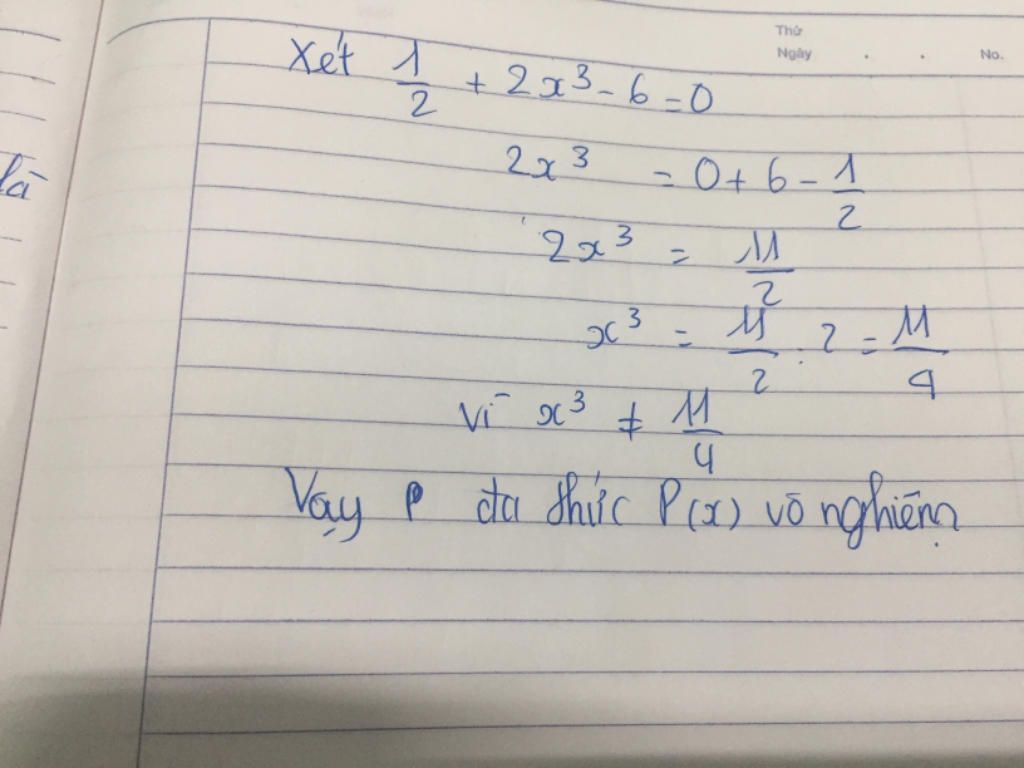 Thứ
Ngày . . No.
là
Xét 1/2 + 2x³ - 6 = 0
2x³ = 0 + 6 - 1/2
2x³ = 11/2
x³ = 11/2 : 2 = 11/4
Vì x³ ≠ 11/4
Vậy P đa thức P(x) vô nghiệm